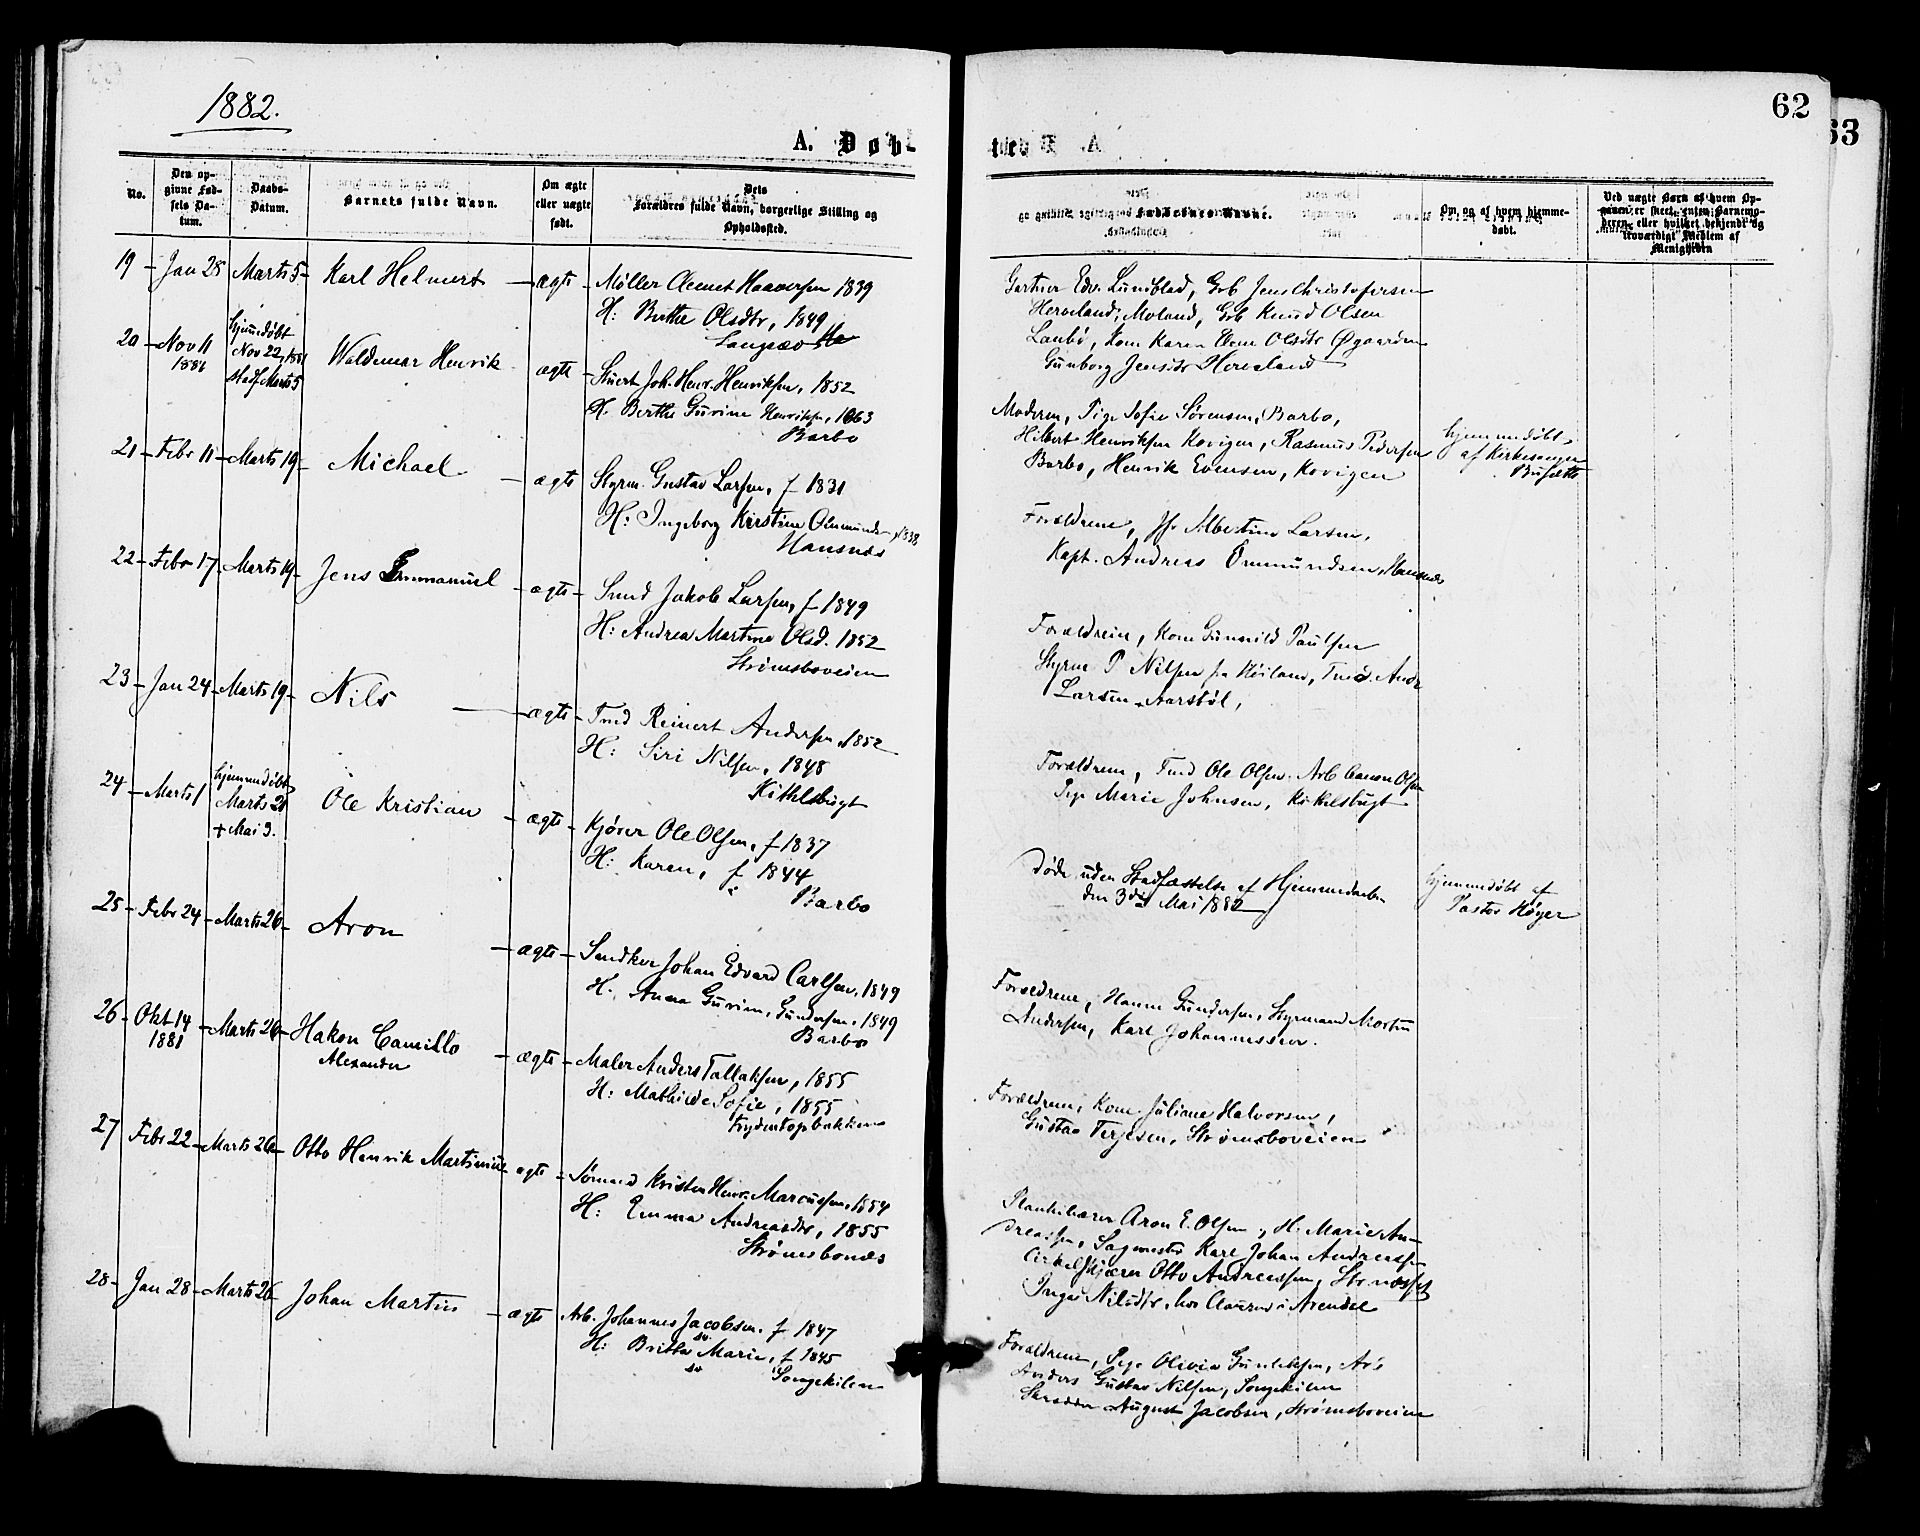 1882.
62
63
A. Døbt
No.
Den op-
givne Fød-
sels Da-
tum.
Daabs-
Datum.
Barnets fulde Navn.
Om ægte
eller uægte
født.
Dets
Forældres fulde Navn, borgerlige Stilling og
Opholdssted.
Faddernes Navne.
Om og af hvem hjemme-
døbt.
Ved uægte Børn af hvem Op-
gaven er skeet, enten Barnemo-
deren eller hvilket bekjendt og
troværdigt Medlem af
Menigheden
19 - Jan 28 Marts 5 - Karl Helmert - ægte - Møller Clemet Haaversen 1839
H: Berthe Olsdtr, 1849
Langsæv
Gartner Edv. Lundblad, Grb Jens Christofersen
Herveland, Moland, Grb Knud Olsen
Langbø, Kom Karen Olsdtr Øgaarden
Gunborg Jensdtr Herveland
20 - Nov 11
1881
hjemmedøbt
Nov 22, 1881
stadf. Marts 5
Waldemar Henrik ægte - Stuert Joh. Henr. Henriksen, 1852
H. Berthe Gurine Henriksen, 1863
Barbo
Moderen, Pige Sofie Sørensen, Barbo,
Hilbert Henriksen Kovigen, Rasmus Pedersen
Barbo, Henrik Evensen, Kovigen
hjemmedøbt
af Kirkesanger
21 - Febr 11 - Marts 19 - Michael - ægte Styrm. Gustav Larsen, f 1831
H: Ingeborg Kirstine Ommunds 1838
Hansnæs
Forældrene, Jfr Albertine Larsen,
Kapt. Andreas Ommundsen, Hansnæs
22 - Febr 17 Marts 19 - Jens Emmanuel - ægte - Smed Jakob Larsen, f 1849
H: Andrea Martine Olsd. 1852
Strømsboveien
Forældrene, Kone Gunnild Paulsen
Styrm P Nilsen fra Høiland, Tmd. Andr
Larsen Aarstøl,
23 - Jan 24 - Marts 19 - Nils - ægte - Tmd Reinert Andersen, 1852
H: Siri Nilsen, 1848
Kittelsbugt
Forældrene, Tmd Ole Olsen. Arb Olsen
Pige Marie Johnsen, Kittelsbugt
24 - Marts 1
hjemmedøbt
Marts 21
+ Mai 3.
Ole Kristian - ægte - Kjører Ole Olsen, f 1837
H: Karen, f 1844
Barbo
døde uden Stadfæstelse af Hjemmedaaben
den 3die Mai 1882
hjemmedøbt af
Pastor Høyer
25 - Febr 24 - Marts 26 - Aron - ægte - Snedker Johan Edvard Carlsen, 1849
H. Anna Gurine, Gundersen, 1849
Barbo
Forældrene, Hanne Gundersen, Styrmand Morten
Andersen, Karl Johannessen.
26 - Okt 14
1881
- Marts 26 - Hakon Camillo
Alexander
- ægte - Maler Anders Tallaksen, 1855
H: Mathilde Sofie, 1855
Frydentopbakken
Forældrene, Kone Juliane Halvorsen,
Gustav Terjesen, Strømsboveien
27 Febr 22 - Marts 26 - Otto Henrik Martinius ægte - Sømand Kristen Henr. Marcussen, 1854
H: Emma Andreasdtr, 1855
Strømsbonæs
Plankebærer Aron E. Olsen, H. Marie An-
dreasen, Sagmester Karl Johan Andreassen
Cirkelskjærer Otto Andreassen, Strnæsset
Inga Nilsdtr, hos Clausen i Arendal
28 - Jan 28 - Marts 26 - Johan Martin - ægte Arb. Johannes Jacobsen, f 1847
sv.
H: Britha Marie, f 1845
sv
Songekilen
Forældrene, Pige Olivia Gundersen, Arb
Anders Gustav Nilsen, Songekilen
Skrædder August Jacobsen, Strømsboveien